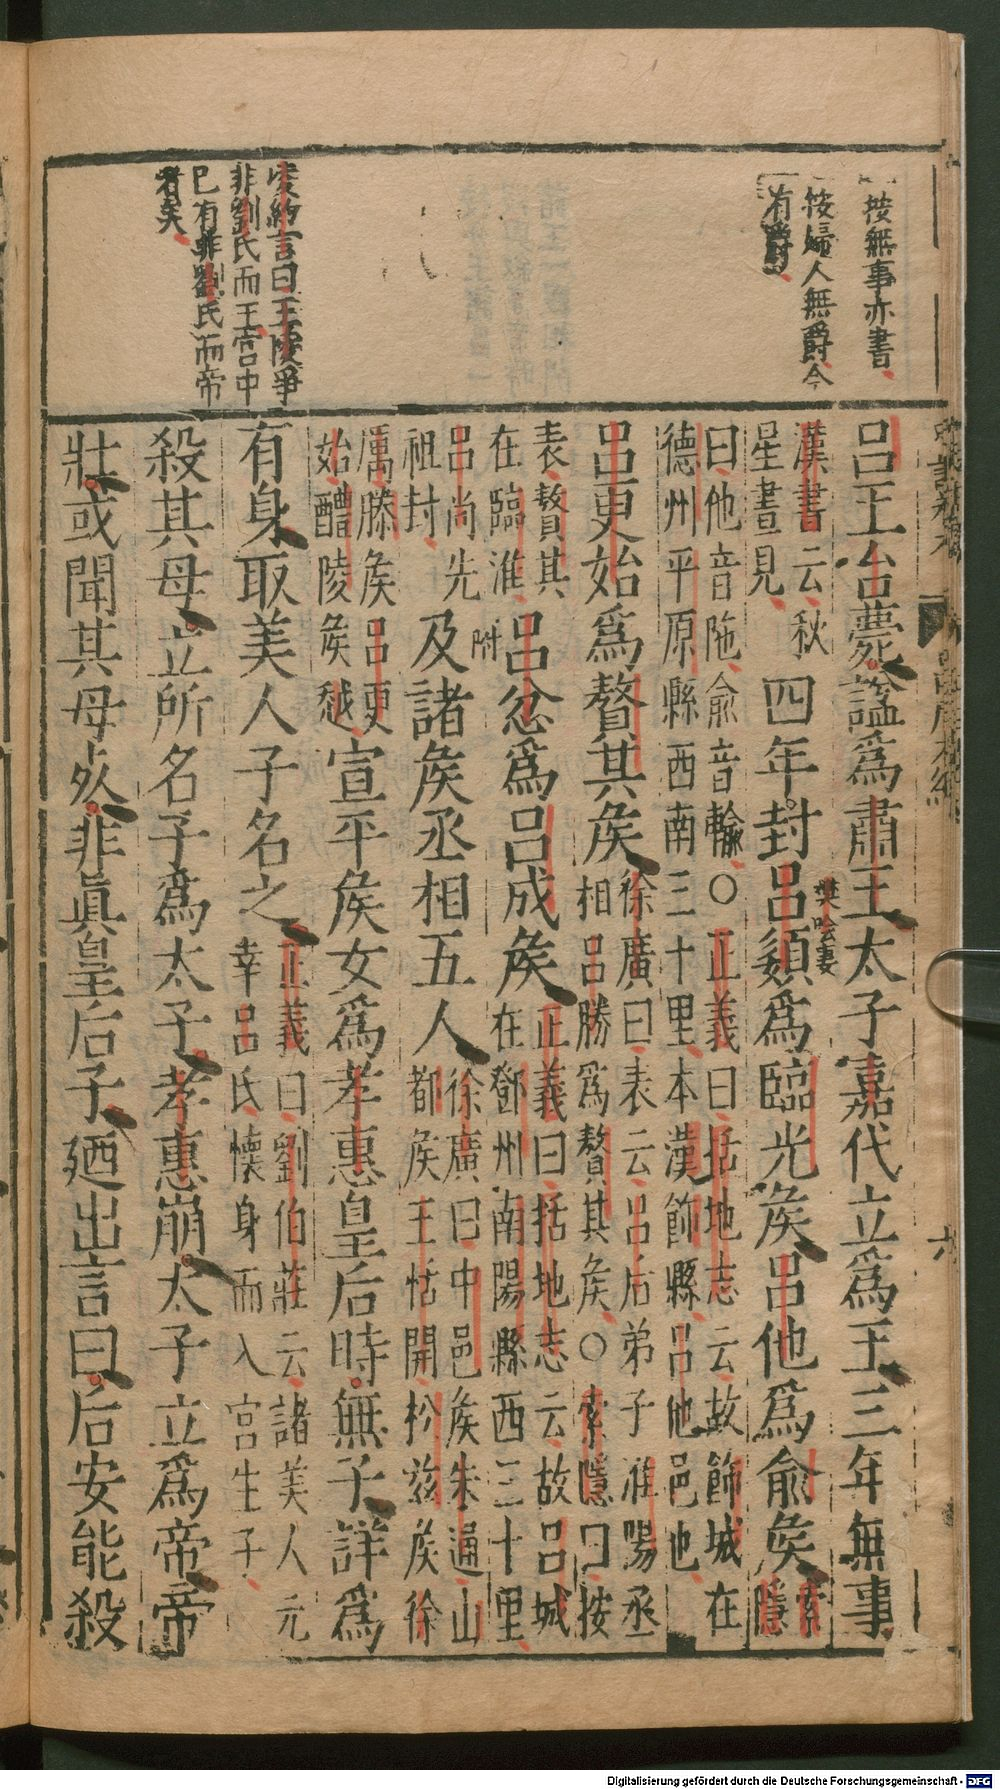 按無事亦書
按婦人無爵今
有爵
史約言曰王陵爭
非劉氏而王宮中
已有非劉氏而帝
者矣
呂王台薨謚爲肅王太子嘉代立爲王三年無事
漢書云秋
星晝見
四年封呂嬃爲臨光矦呂他爲俞矦
樊噲妻
索隱
曰他音陁俞音輸○正義曰括地志云故鄃城在
德州平原縣西南三十里本漢鄃縣呂他邑也
呂更始爲贅其矦
徐廣曰表云呂后弟子淮陽丞
相呂勝爲贅其矦○索隱曰按
表贅其
在臨淮
呂忿爲呂成矦
正義曰括地志云故呂城
在鄧州南陽縣西三十里
呂尚先
祖封
附
及諸矦丞相五人
徐廣曰中邑矦朱通山
都矦王恬開松茲矦徐
厲滕矦呂更
始醴陵矦越
宣平矦女爲孝惠皇后時無子詳爲
有身取美人子名之
正義曰劉伯莊云諸美人元
幸呂氏懷身而入宮生子
殺其母立所名子爲太子孝惠崩太子立爲帝帝
壯或聞其母死非眞皇后子廼出言曰后安能殺
六
Digitalisierung gefördert durch die Deutsche Forschungsgemeinschaft - DFG